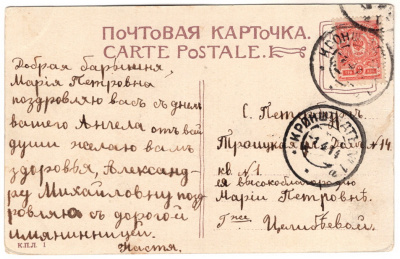 ПОЧТОВАЯ КАРТОЧКА.
CARTE POSTALE.
Добрая барышня,
Марія Петровна
поздровляю васъ съ днем
вашего Ангела отъ всѣй
души желаю вамъ
здоровья, Александ-
ру Михайловну поз
дровляю съ дорогой
имянинницй.
Настя.
К.П.Л. 1
С. Петербургъ.
Троицкая №14
кв. №1.
ея высокоблагородію
Маріи Петровнѣ.
Гже. Целибѣевой.
КРОНШТАДТЪ